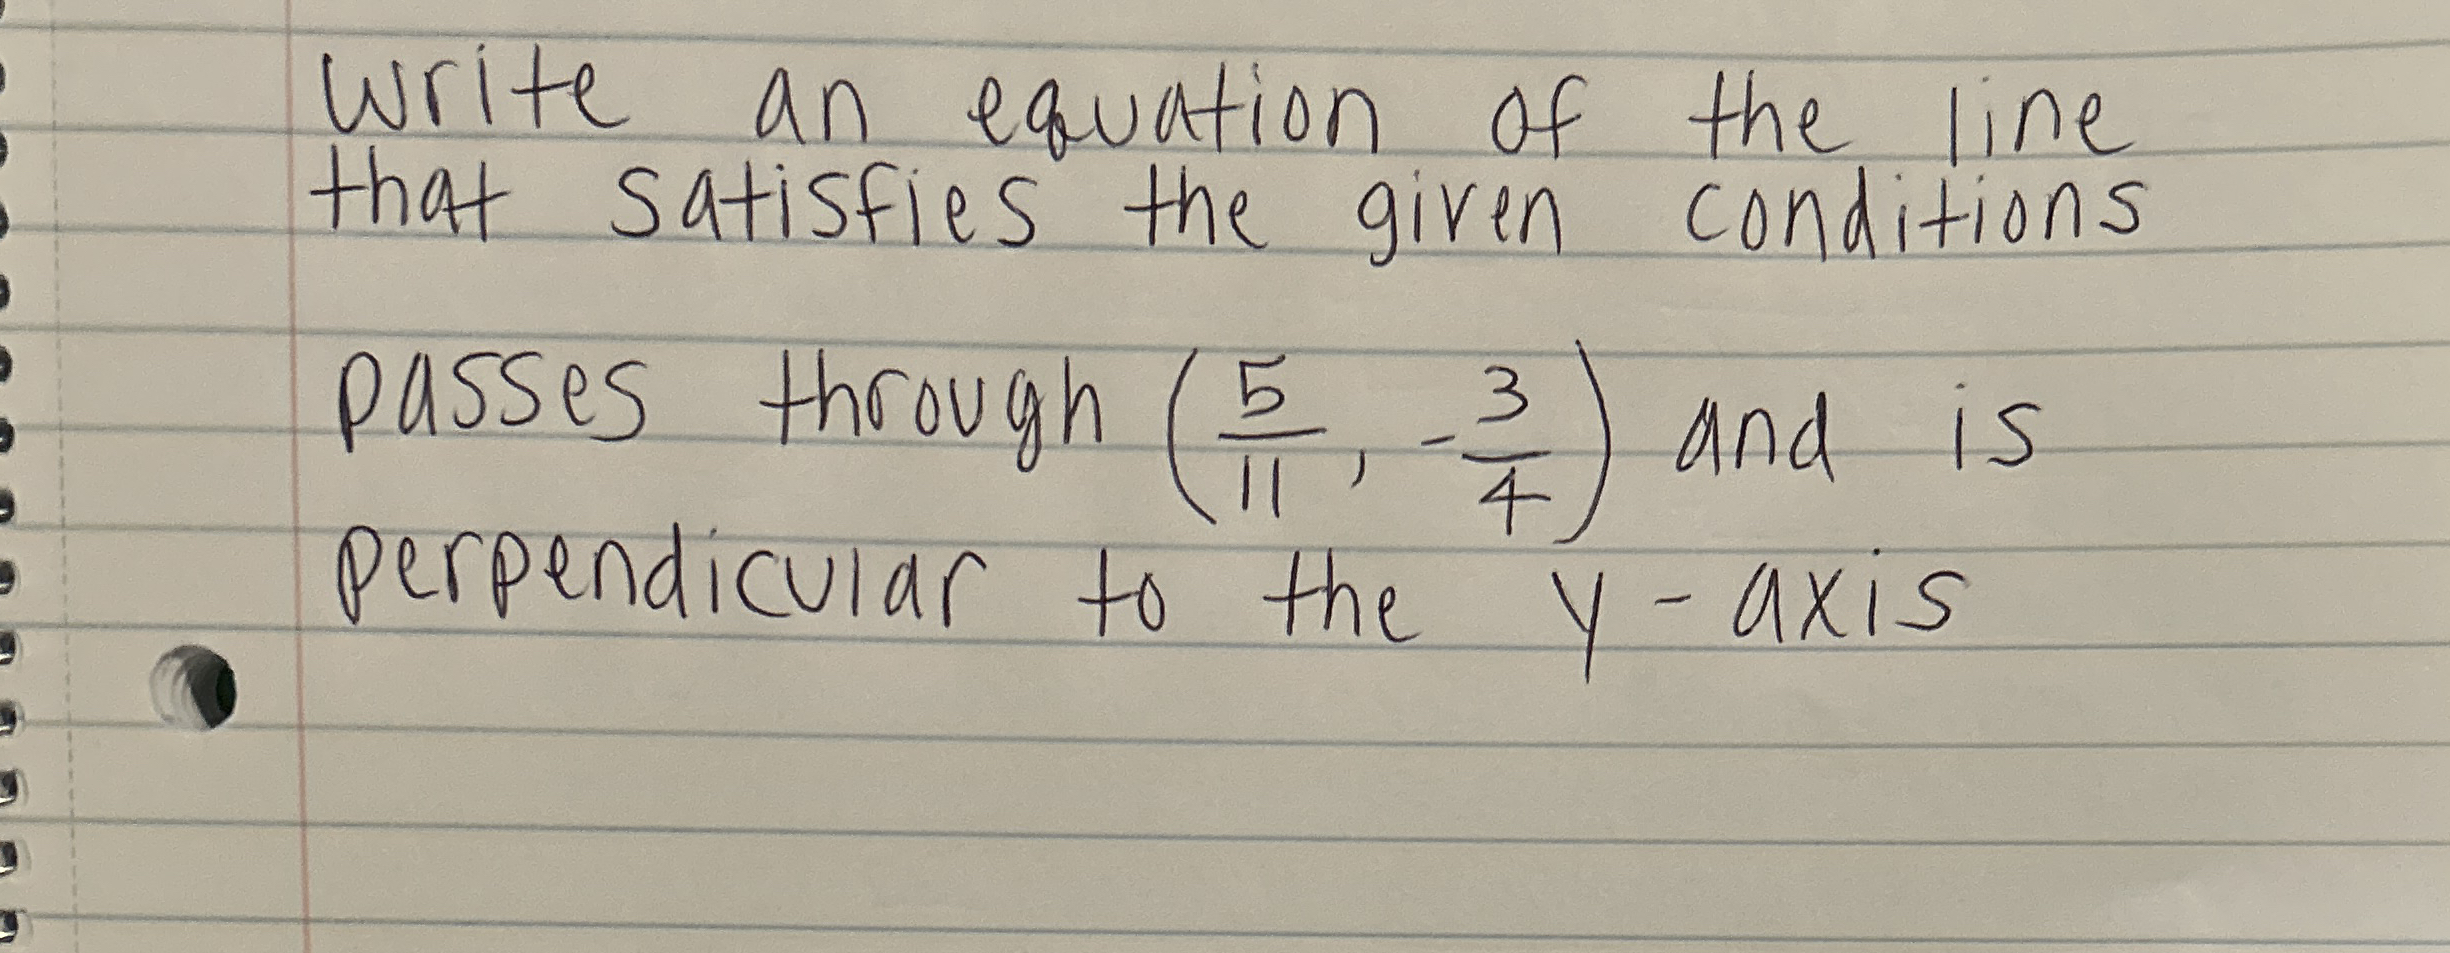 write an equation of the line
that satisfies the given conditions
passes through (5/11, -3/4) and is
perpendicular to the y-axis